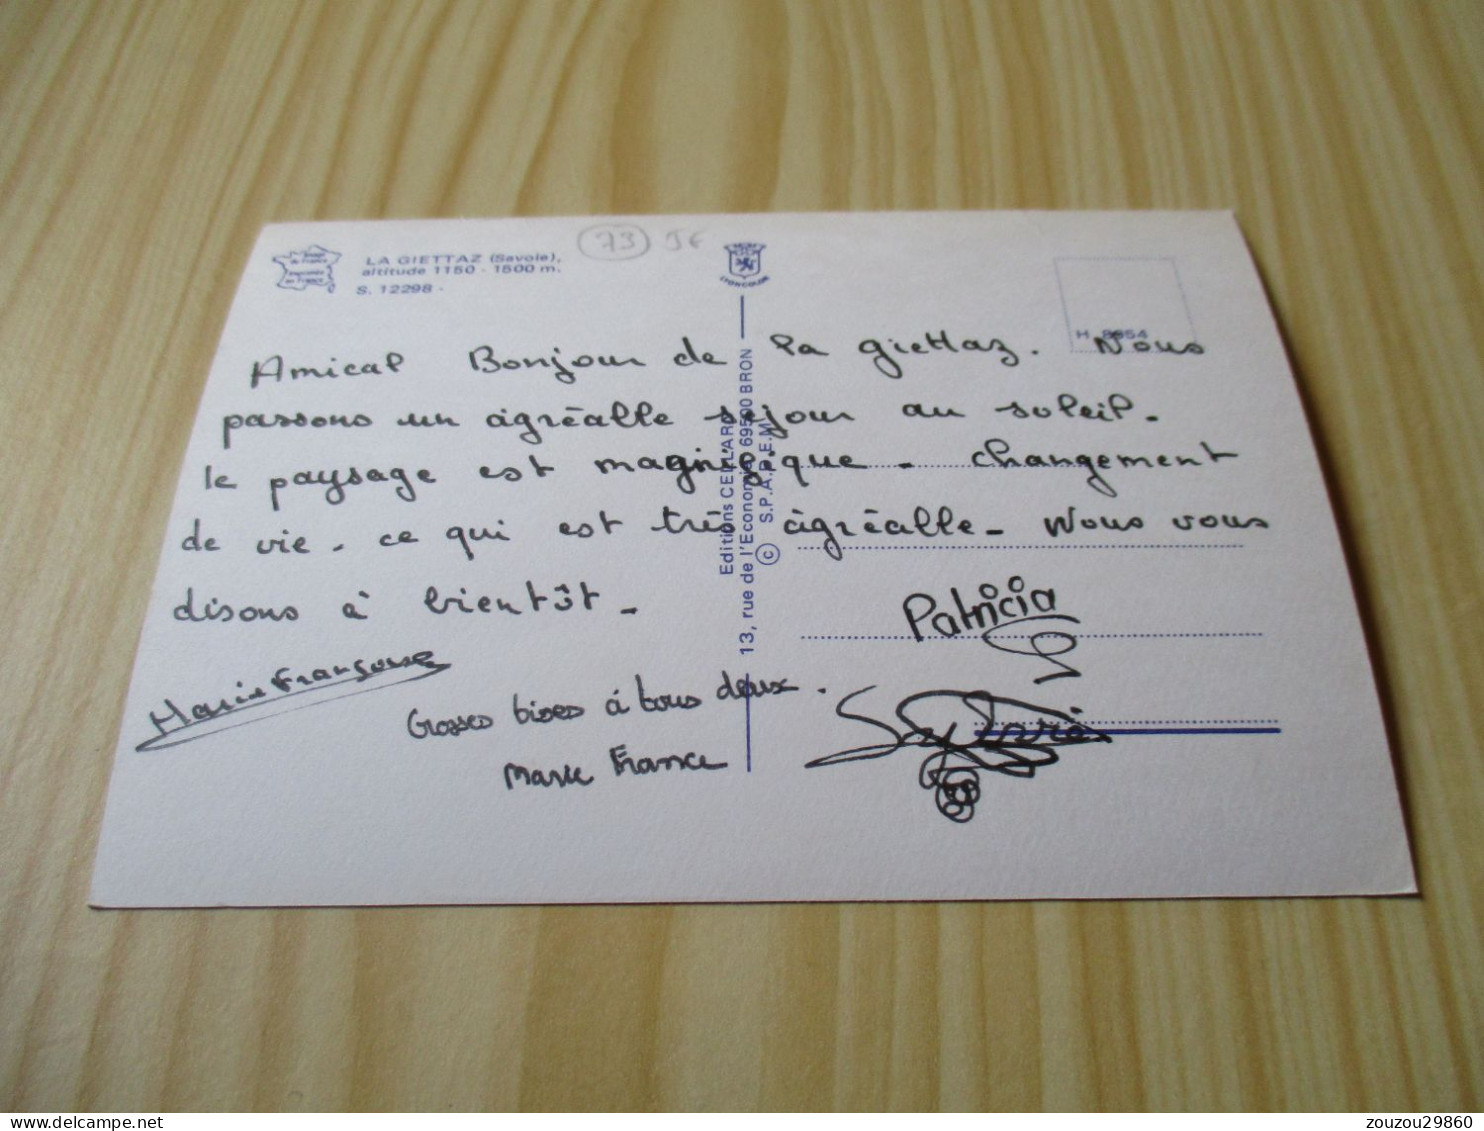 73 5€
LA GIETTAZ (Savoie),
altitude 1150 - 1500 m.
S. 12298 -
LYONCOLOR
H 8854
Editions CELLARD
13, rue de l'Economie 69500 BRON
© S.P.A.D.E.M.
Amical Bonjour de la giettaz. Nous
passons un àgréable séjour au soleil.
le paysage est magnifique. changement
de vie. ce qui est très àgréable. Nous vous
disons à bientôt.
Patricia
Marie Françoise
Grosses bises à tous deux.
Marie France
zouzou29860